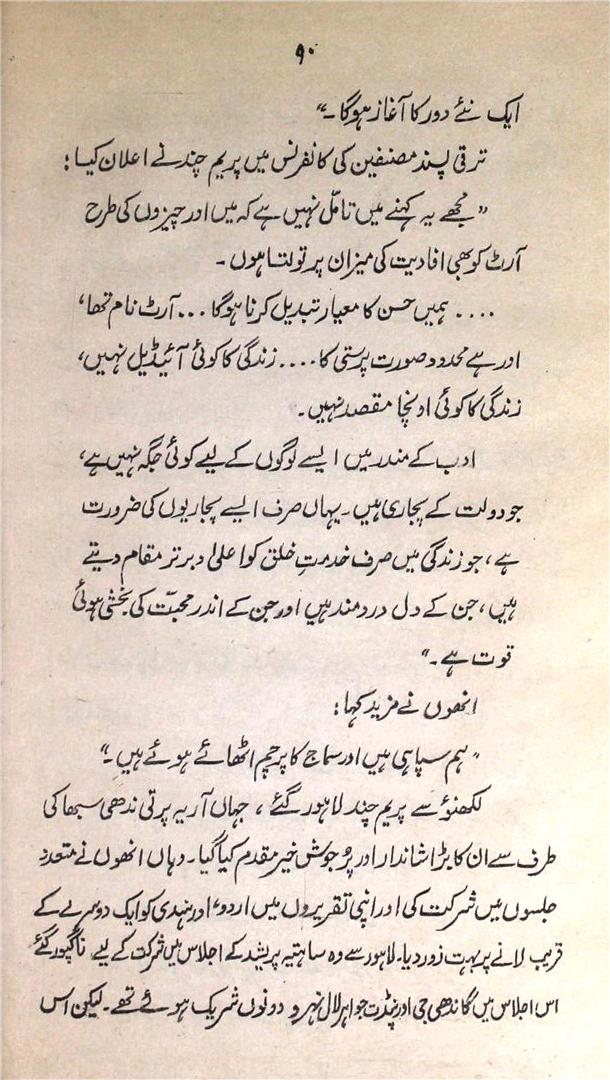 ۹۰
ایک نئے دور کا آغاز ہوگا۔“
ترقی پسند مصنفین کی کانفرنس میں پریم چند نے اعلان کیا:
”مجھے یہ کہنے میں تامّل نہیں ہے کہ میں اور چیزوں کی طرح
آرٹ کو بھی افادیت کی میزان پر تولتا ہوں۔
.... ہمیں حسن کا معیار تبدیل کرنا ہوگا ... آرٹ نام تھا،
اور ہے محدود صورت پرستی کا .... زندگی کا کوئی آئیڈیل نہیں،
زندگی کا کوئی اونچا مقصد نہیں۔
ادب کے مندر میں ایسے لوگوں کے لیے کوئی جگہ نہیں ہے،
جو دولت کے پجاری ہیں۔ یہاں صرف ایسے پجاریوں کی ضرورت
ہے، جو زندگی میں صرف خدمتِ خلق کو اعلیٰ و برتر مقام دیتے
ہیں، جن کے دل درد مند ہیں اور جن کے اندر محبّت کی بخشی ہوئی
قوت ہے۔“
انھوں نے مزید کہا:
”ہم سپاہی ہیں اور سماج کا پرچم اٹھائے ہوئے ہیں۔“
لکھنؤ سے پریم چند لاہور گئے، جہاں آریہ پرتی ندھی سبھا کی
طرف سے ان کا بڑا شاندار اور پُرجوش خیر مقدم کیا گیا۔ وہاں انھوں نے متعدد
جلسوں میں شرکت کی اور اپنی تقریروں میں اردو اور ہندی کو ایک دوسرے کے
قریب لانے پر بہت زور دیا۔ لاہور سے وہ ساہتیہ پریشد کے اجلاس میں شرکت کے لیے ناگپور گئے
اس اجلاس میں گاندھی جی اور پنڈت جواہر لال نہرو دونوں شریک ہوئے تھے۔ لیکن اس